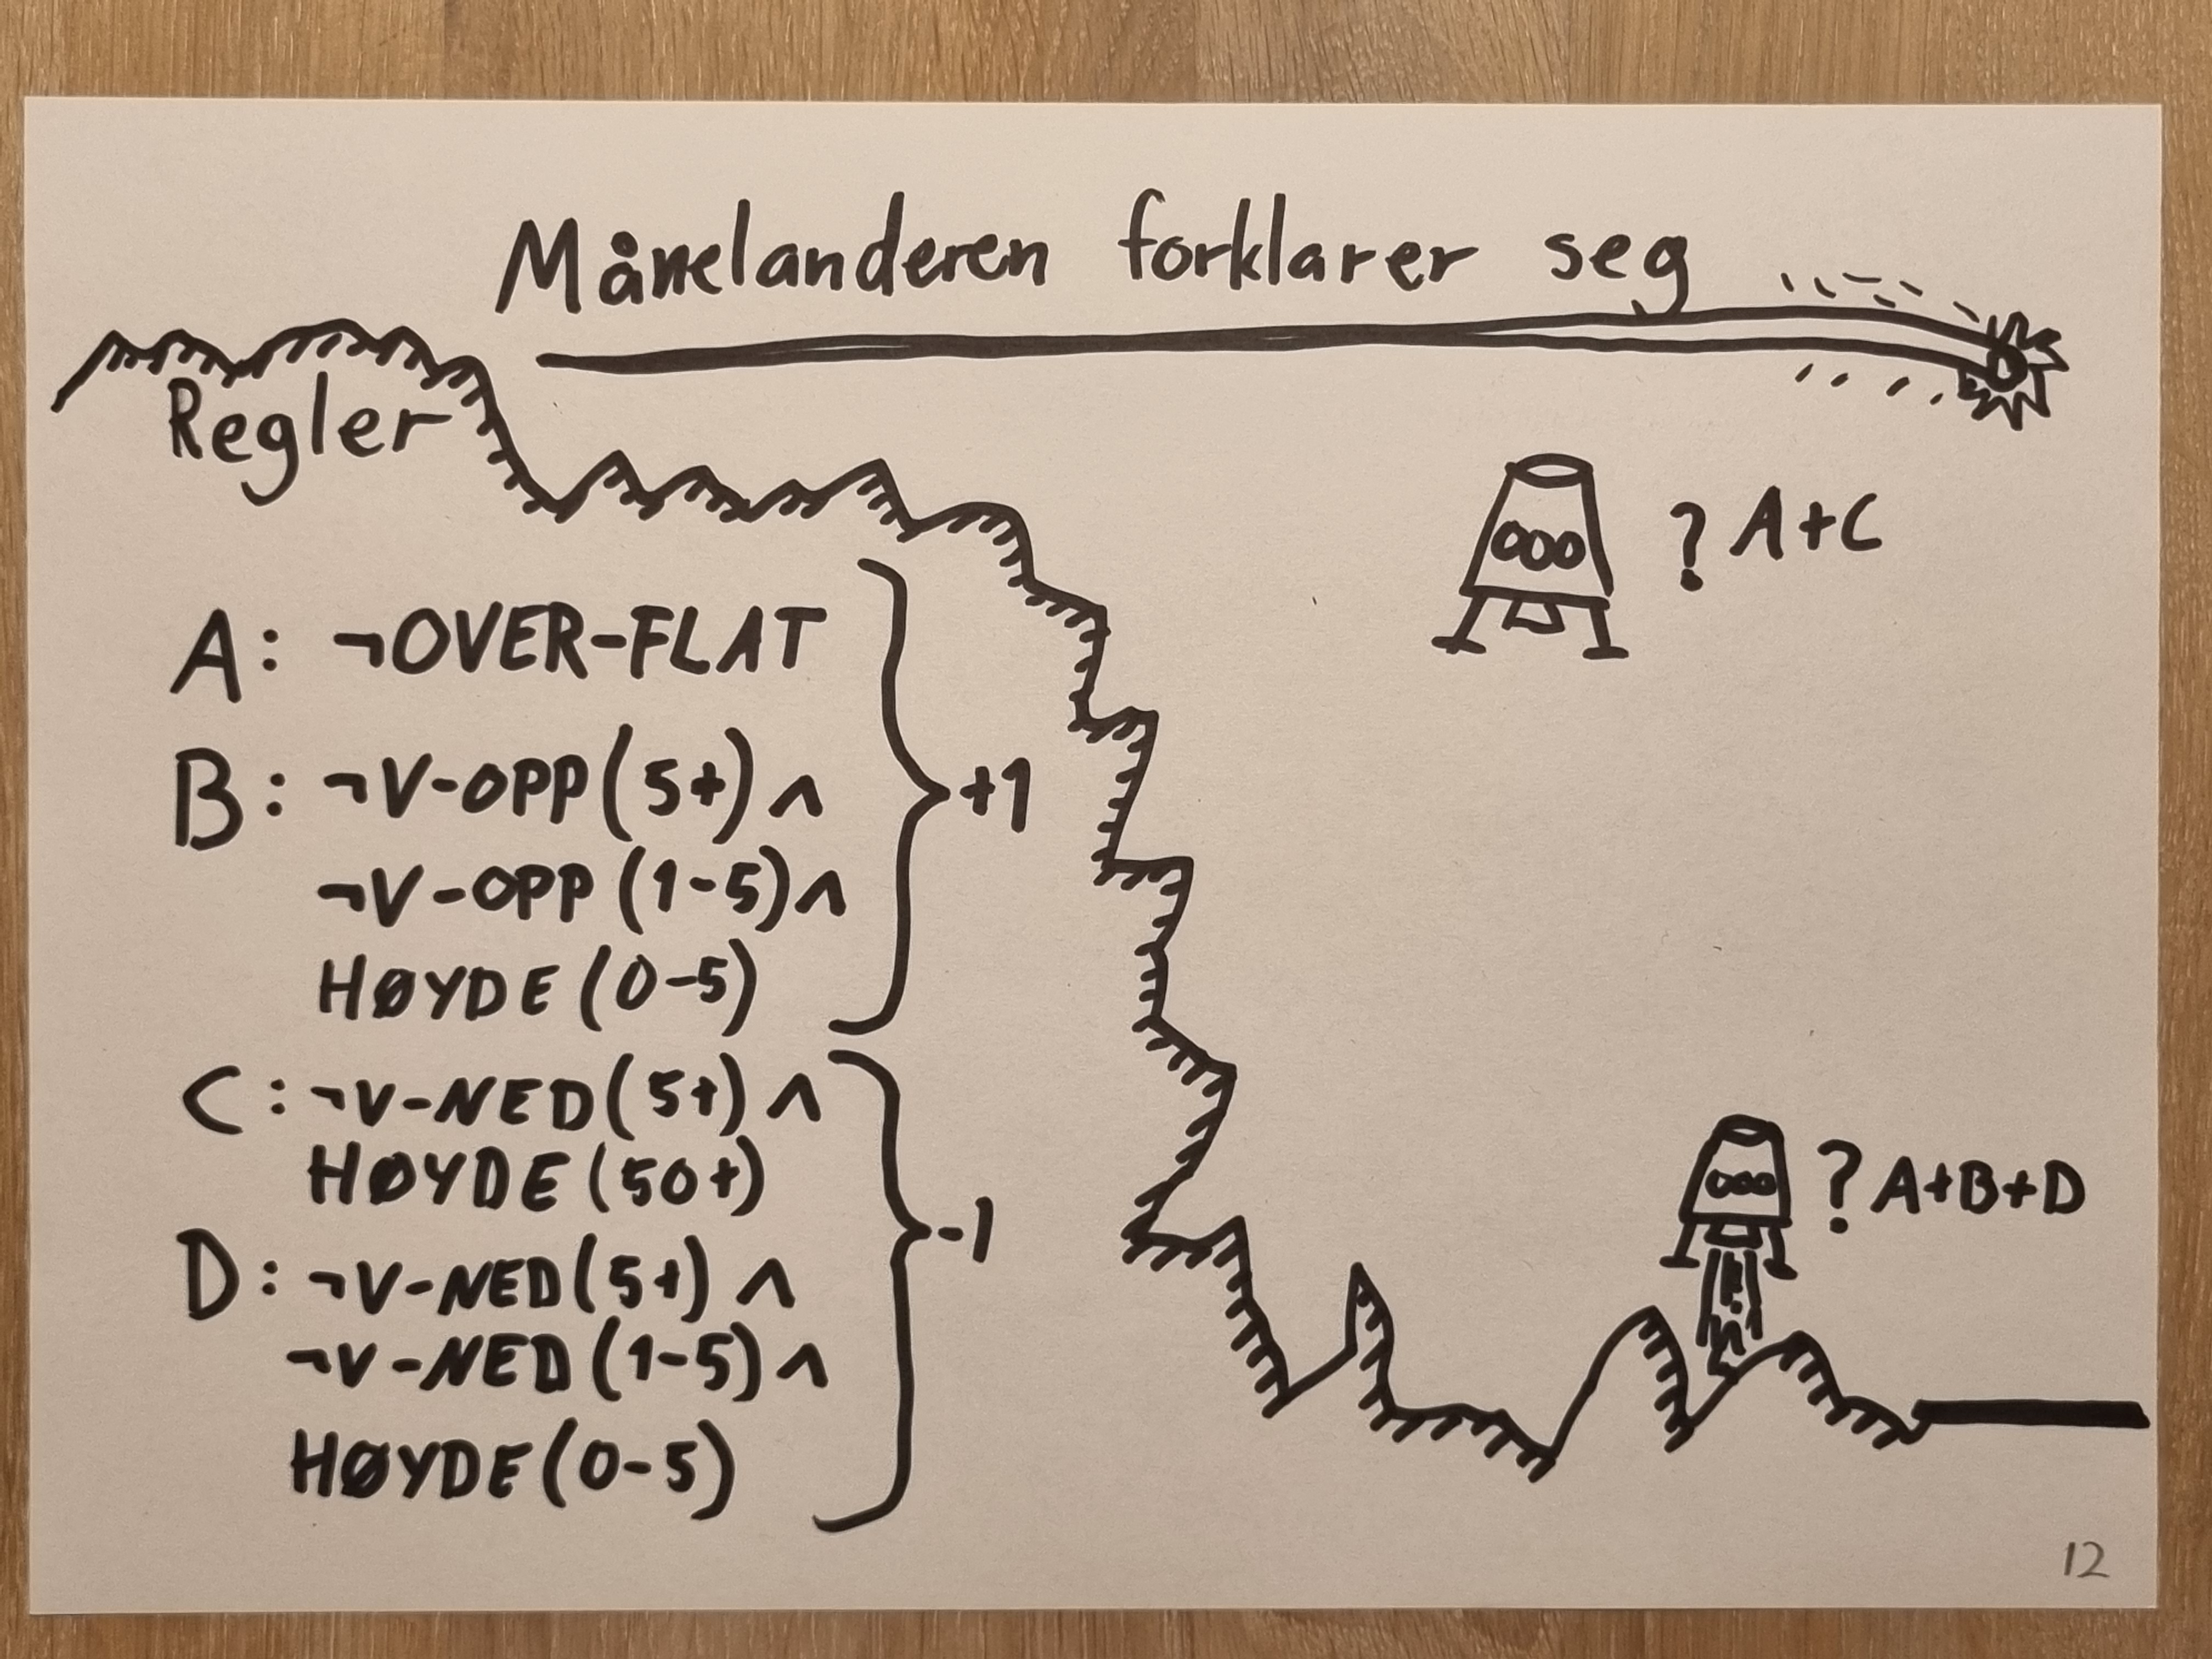 Månelanderen forklarer seg
Regler
? A+C
A: ¬OVER-FLAT
B: ¬V-OPP(5+) ∧
¬V-OPP (1-5) ∧
HØYDE (0-5)
+1
C: ¬V-NED(5+) ∧
HØYDE (50+)
D: ¬V-NED(5+) ∧
¬V-NED (1-5) ∧
HØYDE (0-5)
-1
? A+B+D
12